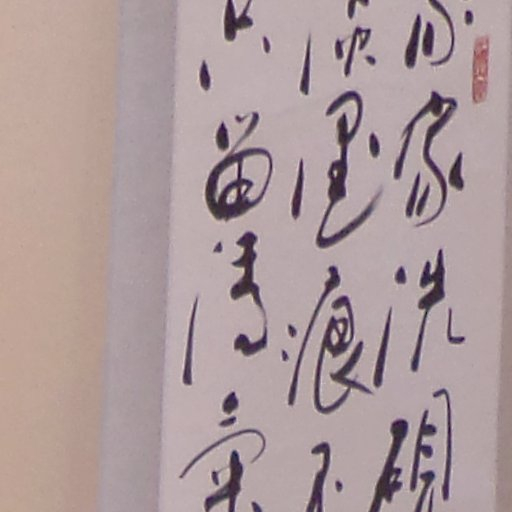 家洗硯
淡墨痕不
只留清氣